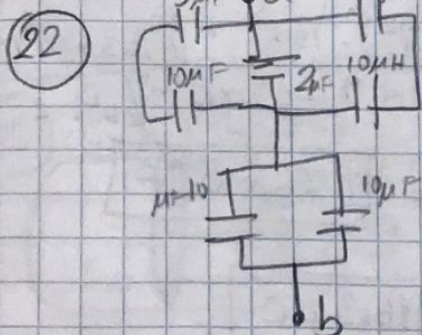 22
10μF
2μF
10μH
μF10
10μF
b